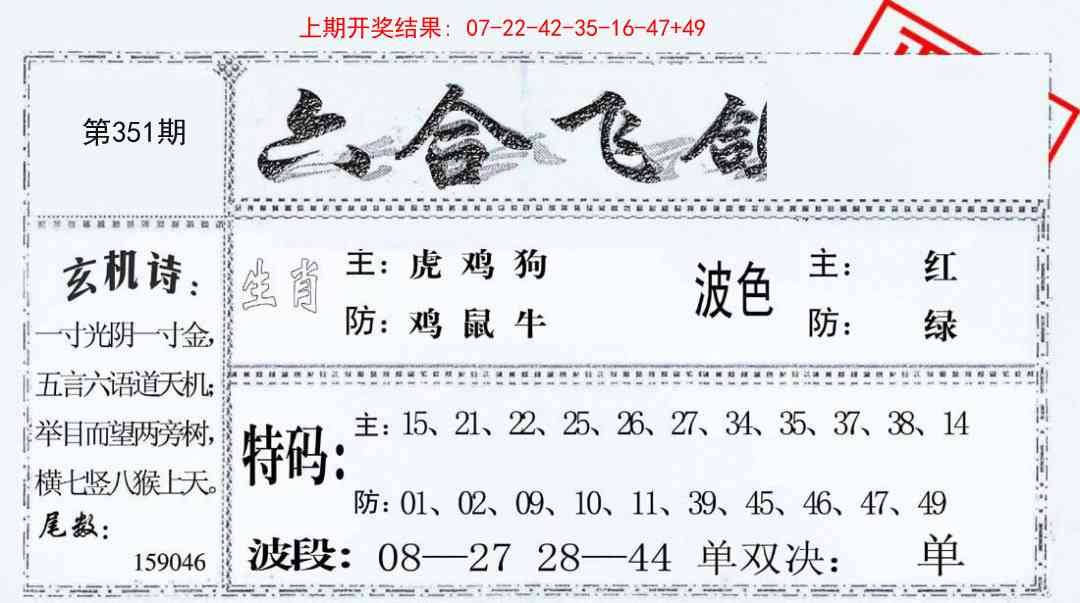 上期开奖结果：07-22-42-35-16-47+49
第351期
六合飞
玄机诗：
一寸光阴一寸金，
五言六语道天机；
举目而望两旁树，
横七竖八猴上天。
尾数：
159046
生肖
主：虎 鸡 狗
防：鸡 鼠 牛
波色
主： 红
防： 绿
特码：
主：15、21、22、25、26、27、34、35、37、38、14
防：01、02、09、10、11、39、45、46、47、49
波段：08—27 28—44 单双决： 单